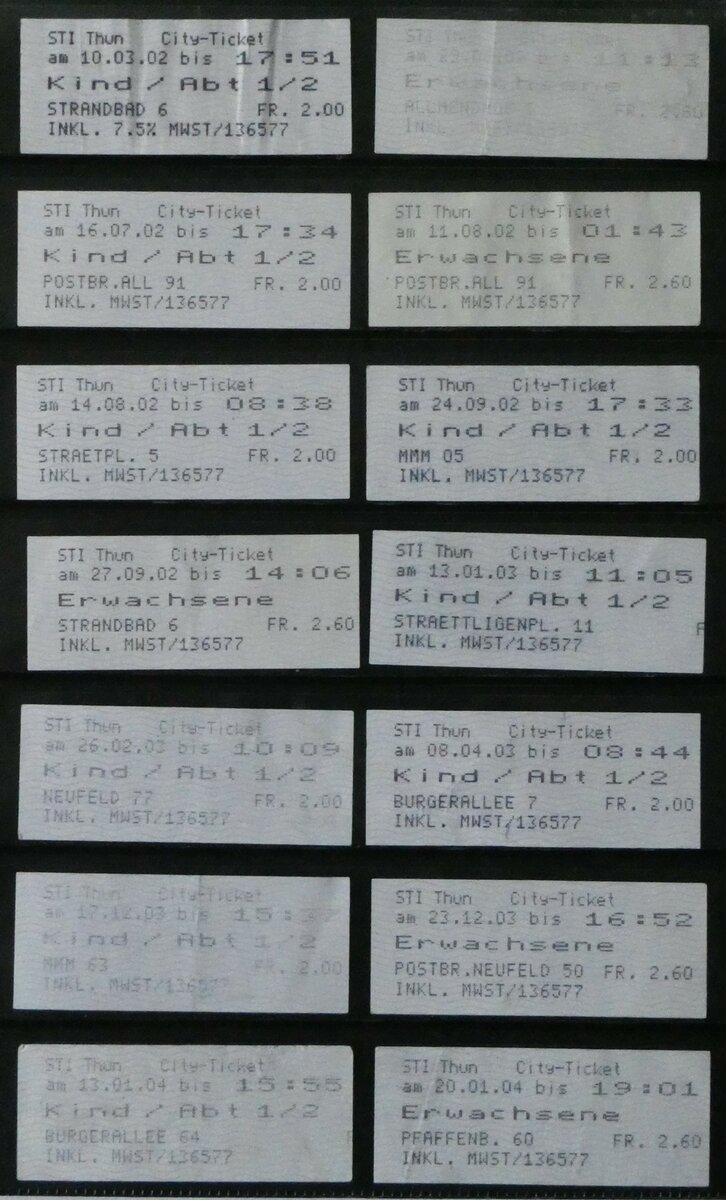 STI Thun City-Ticket
am 10.03.02 bis 17:51
Kind / Abt 1/2
STRANDBAD 6 FR. 2.00
INKL. 7.5% MWST/136577
11:13
Erwachsene
FR. 2.60
INKL.
STI Thun City-Ticket
am 16.07.02 bis 17:34
Kind / Abt 1/2
POSTBR.ALL 91 FR. 2.00
INKL. MWST/136577
STI Thun City-Ticket
am 11.08.02 bis 01:43
Erwachsene
POSTBR.ALL 91 FR. 2.60
INKL. MWST/136577
STI Thun City-Ticket
am 14.08.02 bis 08:38
Kind / Abt 1/2
STRAETPL. 5 FR. 2.00
INKL. MWST/136577
STI Thun City-Ticket
am 24.09.02 bis 17:33
Kind / Abt 1/2
MMM 05 FR. 2.00
INKL. MWST/136577
STI Thun City-Ticket
am 27.09.02 bis 14:06
Erwachsene
STRANDBAD 6 FR. 2.60
INKL. MWST/136577
STI Thun City-Ticket
am 13.01.03 bis 11:05
Kind / Abt 1/2
STRAETTLIGENPL. 11 F
INKL. MWST/136577
STI Thun City-Ticket
am 26.02.03 bis 10:09
Kind / Abt 1/2
NEUFELD 77 FR. 2.00
INKL. MWST/136577
STI Thun City-Ticket
am 08.04.03 bis 08:44
Kind / Abt 1/2
BURGERALLEE 7 FR. 2.00
INKL. MWST/136577
STI Thun City-Ticket
am 17.12.03 bis 15:37
Kind / Abt 1/2
MKM 63 FR. 2.00
INKL. MWST/136577
STI Thun City-Ticket
am 23.12.03 bis 16:52
Erwachsene
POSTBR.NEUFELD 50 FR. 2.60
INKL. MWST/136577
STI Thun City-Ticket
am 13.01.04 bis 15:55
Kind / Abt 1/2
BURGERALLEE 64 F
INKL. MWST/136577
STI Thun City-Ticket
am 20.01.04 bis 19:01
Erwachsene
PFAFFENB. 60 FR. 2.60
INKL. MWST/136577